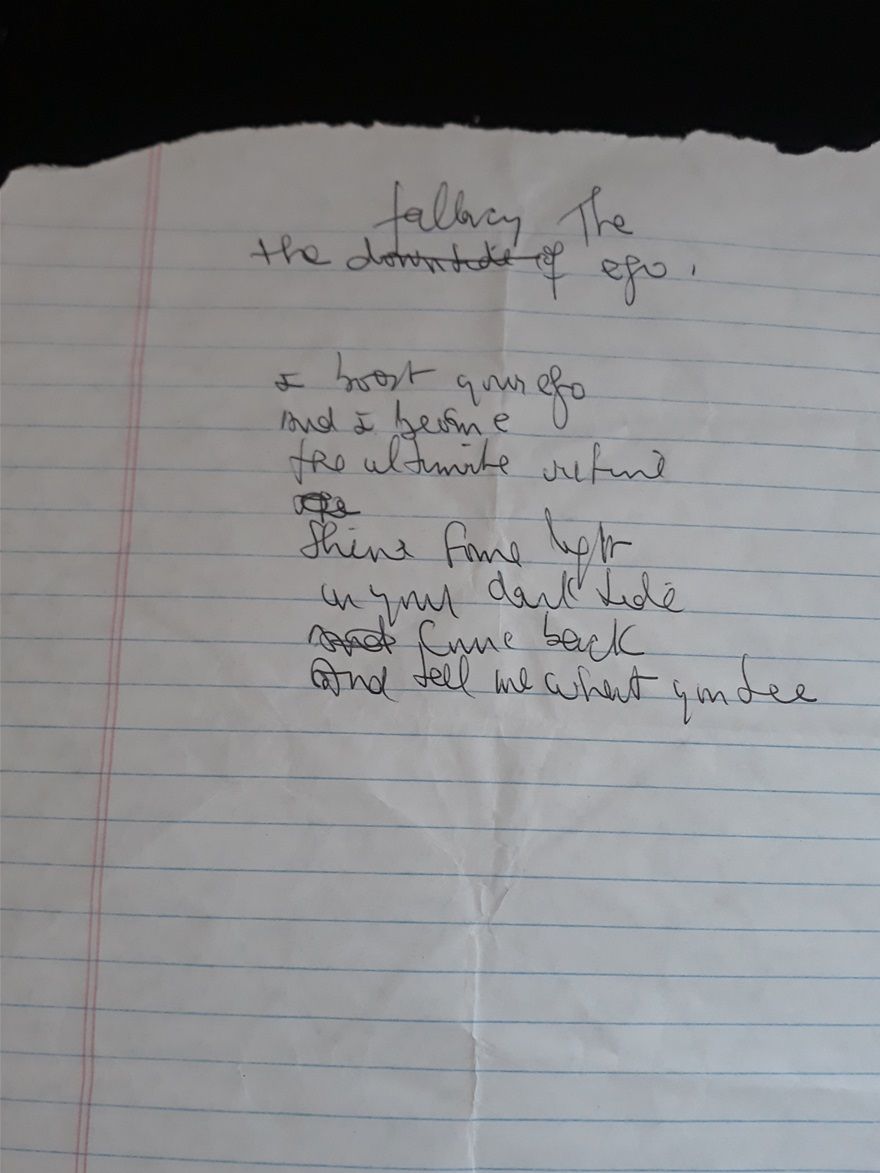 fallacy The
the downside of ego.
I boost your ego
And I become
the ultimate
Shine some light
in your dark side
Come back
And tell me what you see